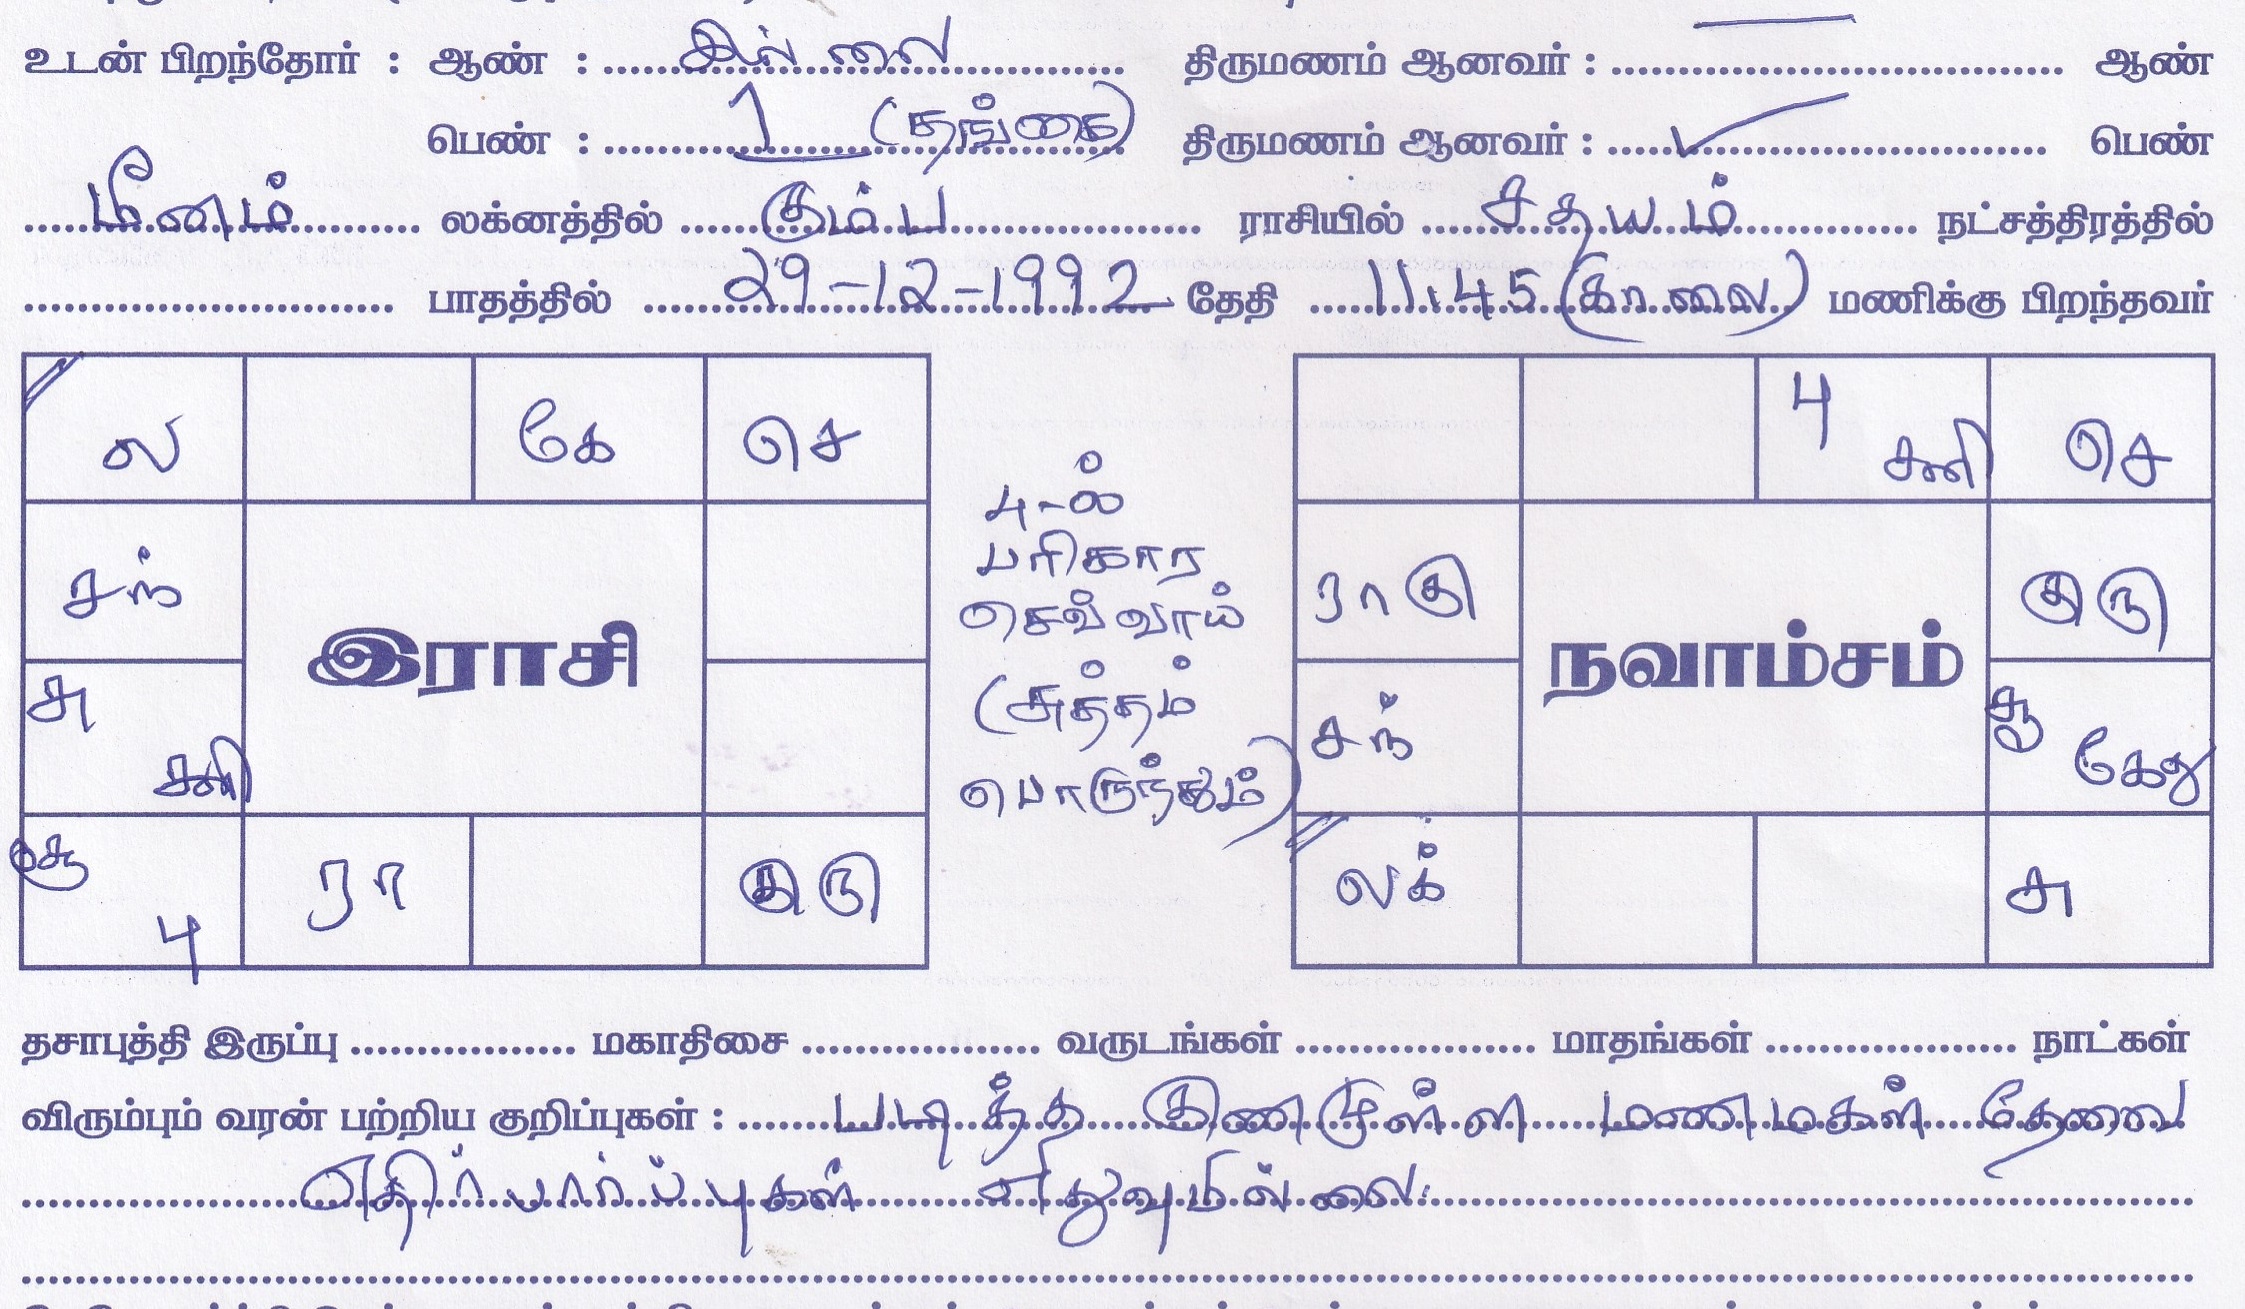 உடன் பிறந்தோர் : ஆண் : இல்லை திருமணம் ஆனவர் : ஆண்
பெண் : 1 (தங்கை) திருமணம் ஆனவர் : ✓ பெண்
மீனம் லக்னத்தில் கும்ப ராசியில் சதயம் நட்சத்திரத்தில்
பாதத்தில் 29-12-1992 தேதி 11.45 (காலை) மணிக்கு பிறந்தவர்
ல கே செ
சந்
சு
சனி
சூ
பு ரா குரு
இராசி
4-ல்
பரிகார
செவ்வாய்
(சுத்தம்
பொருந்தும்)
பு சனி செ
ராகு குரு
சந் சூ கேது
லக் சு
நவாம்சம்
தசாபுத்தி இருப்பு மகாதிசை வருடங்கள் மாதங்கள் நாட்கள்
விரும்பும் வரன் பற்றிய குறிப்புகள் : படித்த குணமுள்ள மணமகள் தேவை
எதிர்பார்ப்புகள் எதுவுமில்லை.